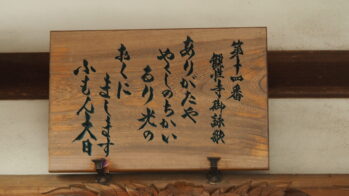 第十四番
観惺寺御詠歌
ありがたや
やくしのちかい
るり光の
おくに
まします
ふもん大日